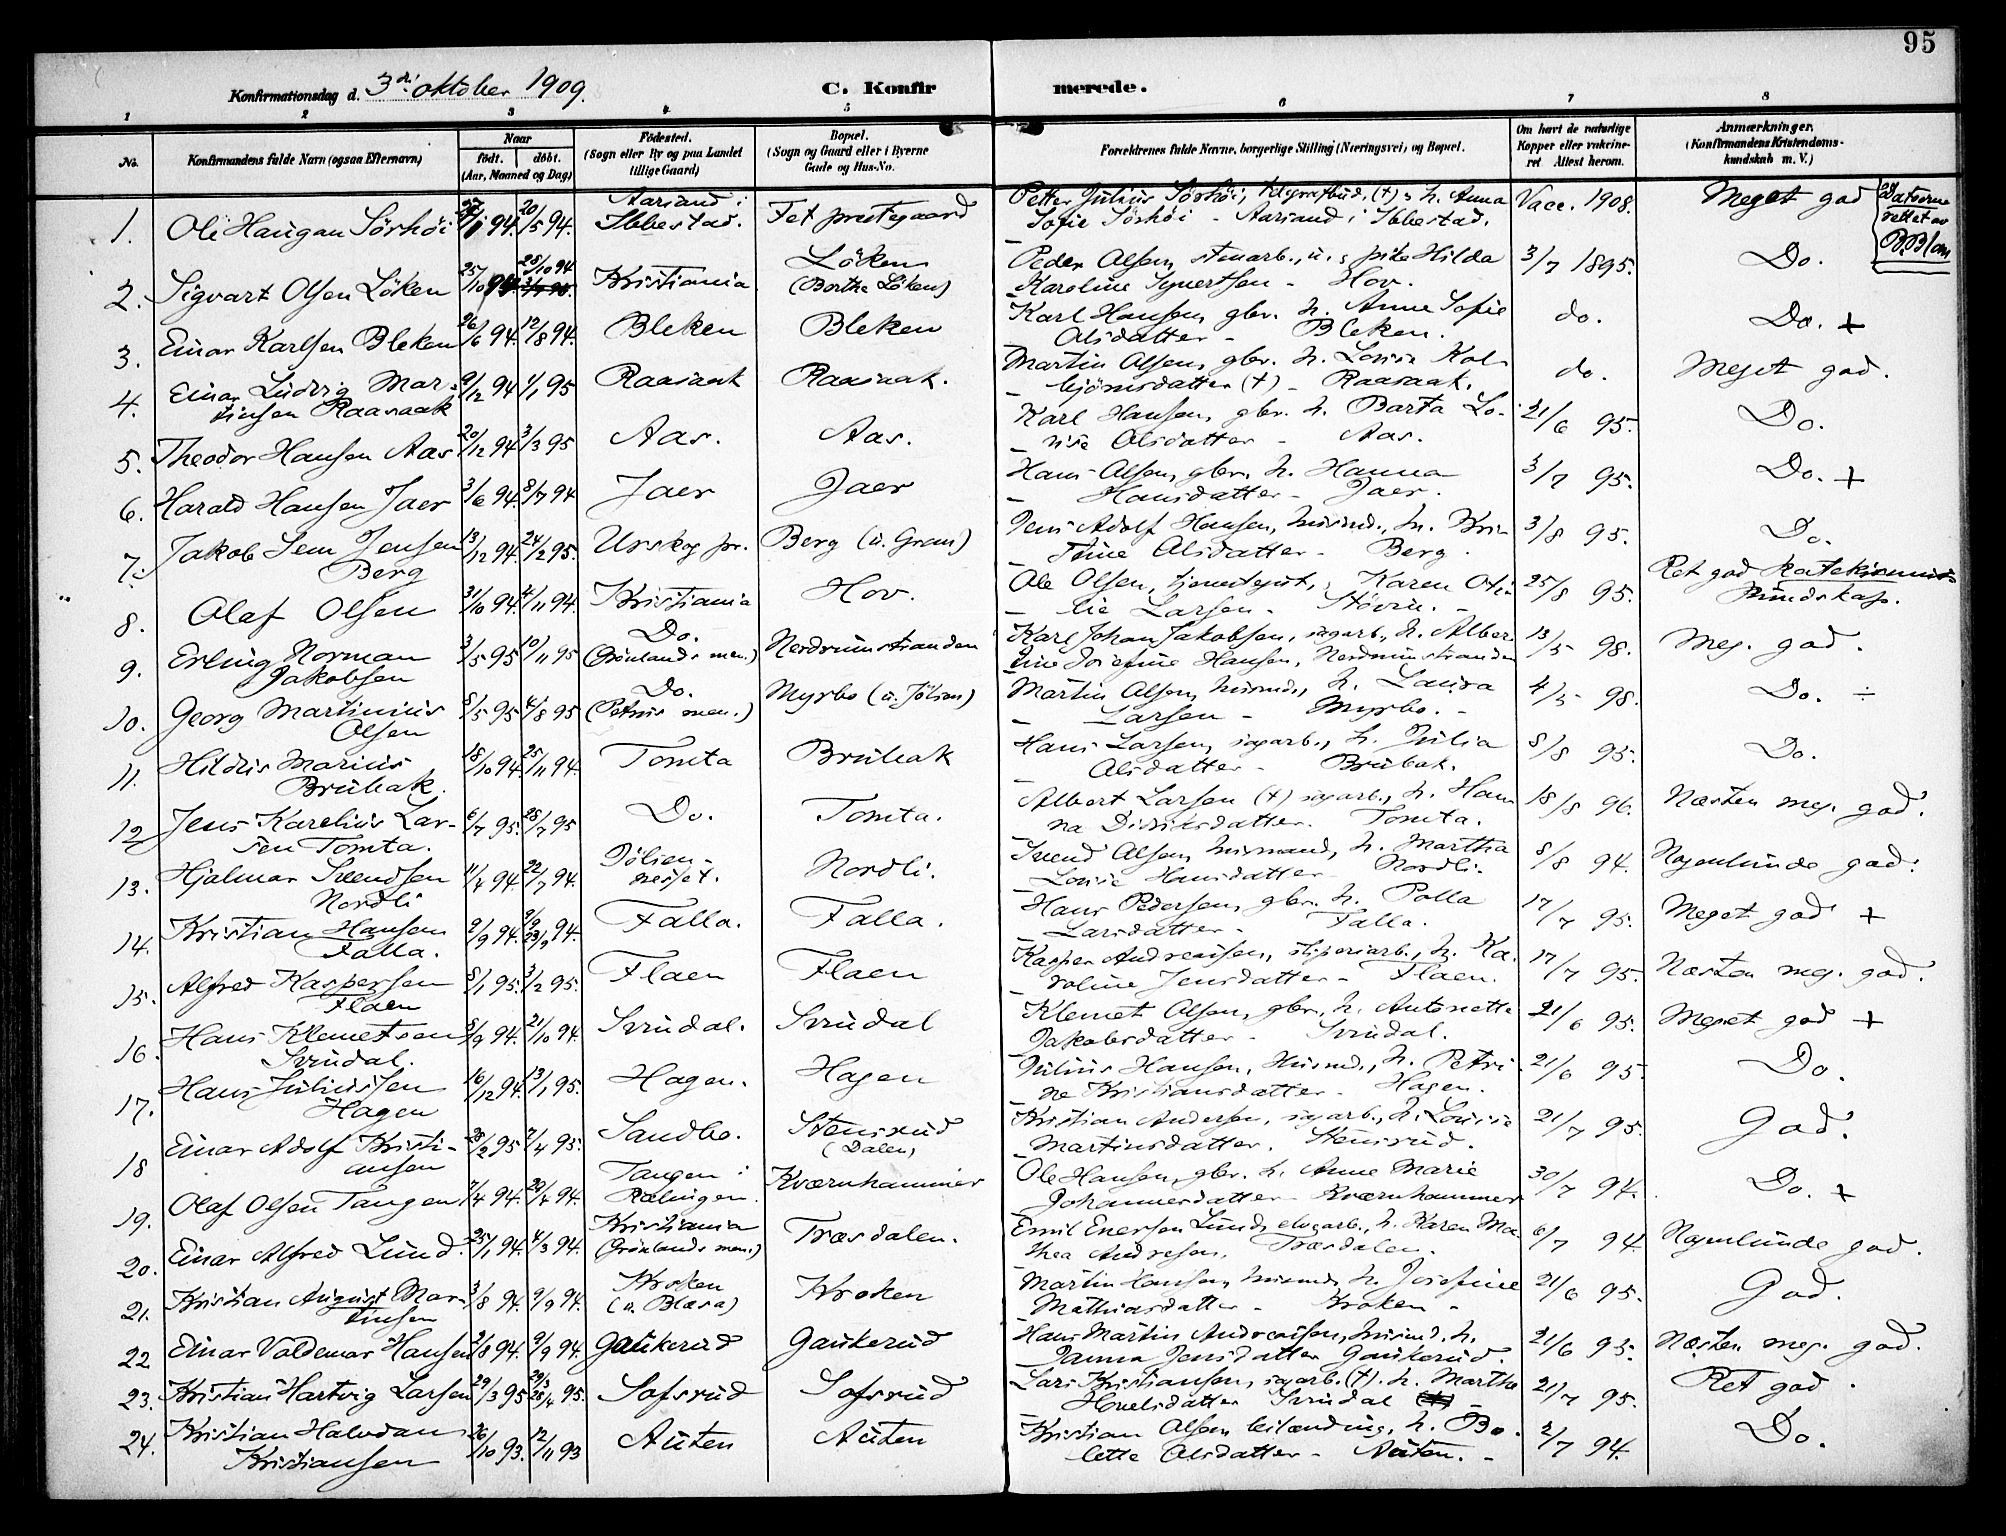 95
Konfirmationsdag d. 3di oktober 1909.
C. Konfirmerede.
1 2 3 4 5 6 7 8
No. Konfirmandens fulde Navn (ogsaa Efternavn) Naar födt. döbt. (Aar, Maaned og Dag)
Födested. (Sogn eller By og paa Landet tillige Gaard)
Bopæl. (Sogn og Gaard eller i Byerne Gade og Hus-No.
Forældrenes fulde Navne, borgerlige Stilling (Næringsvei) og Bopæl.
Om havt de naturlige Kopper eller vaccineret Attest herom.
Anmærkninger. (Konfirmandens Kristendomskundskab m. V.)
1. Ole Haugan Sörhöi 94. 20/5 94. Aarsand i Ibbestad. Fet prestegaard
Petter Julius Sörhöi, telegrafbud, (+) , h. Anna
Sofie Sörhöi - Aarsand i Ibbestad. Vacc. 1908. Meget god
Datoerne rettet av
2. Sigvart Olsen Löken 25/10 94. 28/10 94 Kristiania Löken (Berthe Löken)
Peder Olsen, stenarb., u. ; pike Hilda
Karoline Synertsen - Hov. 3/7 1895. Do.
3. Einar Karlsen Bleken 26/6 94. 12/8 94. Bleken Bleken
Karl Hansen, gbr. h. Anne Sofie
Olsdatter - Bleken. do. Do. +
4. Einar Ludvig Martinsen Raasaak 9/12 94 1/1 95 Raasaak Raasaak.
Martin Olsen, gbr. h. Lovise Kolbjörnsdatter (+) - Raasaak. do. Meget god.
5. Theodor Hansen Aas 20/12 94 3/3 95 Aas. Aas.
Karl Hansen, gbr. h. Barta Lovise Olsdatter - Aas. 21/6 95. Do.
6. Harald Hansen Jaer 3/6 94. 8/7 94 Jaer Jaer
Hans Olsen, gbr. h. Hanna
Hansdatter - Jaer. 3/7 95. Do. +
7. Jakob Sem Jensen Berg 13/12 94. 24/2 95. Urskog pr. Berg (u. Gram)
Jens Adolf Hansen, husmd., h. Kristine Olsdatter - Berg. 3/8 95. Do.
8. Olaf Olsen 31/10 94. 4/11 94. Kristiania Hov.
Ole Olsen, tjenestgut, ; Karen Otilie Larsen - Stövin. - 25/8 95. Ret god Katekismus kundskap.
9. Erling Norman Jakobsen 3/5 95 10/11 95 Do. (Grönlands men.) Nerdrumstranden
Karl Johan Jakobsen, sagarb., h. Albertine Josefine Hansen, Nerdrumstranden 13/5 98. Meg. god.
10. Georg Martinius Olsen 8/5 95 4/8 95 Do. (Petrus men.) Myrbo (u. Jölsen)
Martin Olsen, husmd., h. Laura
Larsen - Myrbo. - 4/5 98. Do. ÷
11. Hildus Marius Brubak. 18/10 94. 25/11 94. Tomta Brubak
Hans Larsen, sagarb., h. Julia
Olsdatter - Brubak. 8/8 95. Do.
12 Jens Karelius Larsen Tomta. 6/7 95. 28/7 95 Do. Tomta.
Albert Larsen (+) sagarb., h. Hanna Didriksdatter. Tomta. 18/8 96. Næsten meg. god.
13. Hjalmar Svendsen Nordli 11/4 94 22/7 94. Jölsen- Nordli.
Svend Olsen, husmand, h. Martha
Lovise Hansdatter Nordli. 8/8 94. Nogenlunde god.
14. Kristian Hansen Falla. 2/9 94. 23/9 94. Falla. Falla.
Hans Pedersen, gbr. h. Polla
Larsdatter - Falla. 17/7 95. Meget god +
15. Alfred Kaspersen Flaen 8/1 95. 3/2 95. Flaen Flaen
Kasper Andreassen, sliperiarb., h. Karoline Jensdatter - Flaen. 17/7 95. Næsten meg. god.
16. Hans Klemetsen Svrudal. 8/9 94. 21/10 94. Svrudal. Svrudal
Klemet Olsen, gbr., h. Antonette
Jakobsdatter - Svrudal. 21/6 95. Meget god +
17. Hans Juliussen Hagen 16/12 94. 13/1 95. Hagen. Hagen
Julius Hansen, husmd., h. Petrine Kristiansdatter - Hagen. 21/6 95. Do.
18 Einar Adolf Kristiansen 28/2 95 7/4 95. Sandbo. Stensrud (Dalen)
Kristian Andersen, sagarb., h. Lovise
Martinsdatter. Stensrud. 21/7 95. God.
19. Olaf Olsen Tangen 7/4 94. 22/4 94. Tangen i Rælingen. Kværnhammer
Ole Hansen, gbr. h. Anne Marie
Johannesdatter - Kværnhammer 30/7 94. Do. +
20. Einar Alfred Lund. 25/1 94. 4/3 94. Kristiania (Grönlands men.) Træsdalen.
Emil Enersen Lund, elvearb., h. Karen Mathea Andresen. Træsdalen. 6/7 94. Nogenlunde god.
21. Kristian August Martinsen 3/8 94. 9/9 94. Kroken (u. Blæsa) Kroken
Martin Hansen, husmd., h. Josefine
Mathiasdatter - Kroken - 21/6 95. God.
22 Einar Valdemar Hansen 2/8 94. 9/9 94. Gaukerud Gaukerud
Hans Martin Andreassen, husmd. h.
Janna Jensdatter Gaukerud. 21/6 95. Næsten meg. god.
23. Kristian Hartvig Larsen 29/3 95 28/4 95. Sofsrud Sofsrud
Lars Kristiansen, sagarb. (+). h. Marthe
Hovelsdatter Svrudal 21/7 95. Ret god.
24. Kristian Halvdan Kristiansen 26/10 93. 12/11 93 Auten Auten
Kristian Olsen leilænding, h. Bolette Olsdatter - Auten. - 2/7 94. Do.